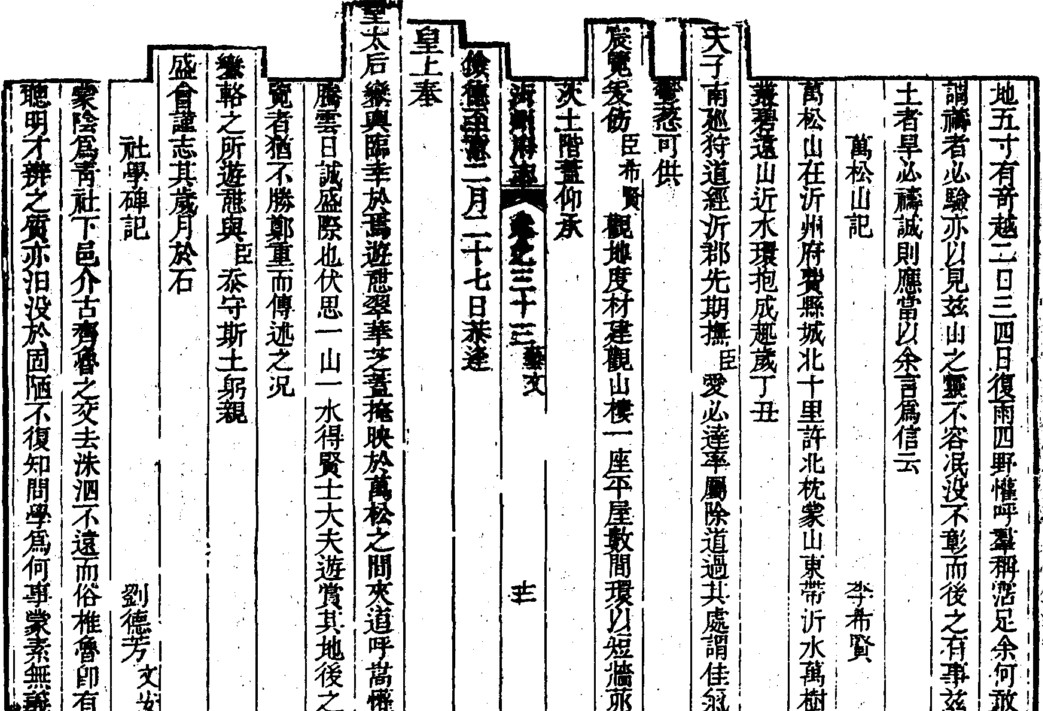 地五寸有奇越二日三四日復雨四野懽呼羣稱霑足余何敢
謂禱者必驗亦以見茲山之靈不容泯没不彰而後之有事茲
土者早必禱誠則應當以余言爲信云
萬松山記 李希賢
萬松山在沂州府費縣城北十里許北枕蒙山東帶沂水萬樹
叢碧遠山近水環抱成趣歲丁丑
天子南廵狩道經沂郡先期撫臣愛必達率屬除道過其處謂佳氣
鬱葱可供
宸覽爰飭臣希賢觀地度材建觀山樓一座平屋數間環以短牆茆
茨土階蓋仰承
沂州府志 卷之三十三 藝文 十三
儉德至意二月二十七日恭逢
皇上奉
皇太后鑾輿臨幸於焉遊憇翠華芝蓋掩映於萬松之間夾道呼嵩懽
騰雲日誠盛際也伏思一山一水得賢士大夫遊賞其地後之
覽者猶不勝鄭重而傳述之况
鑾輅之所遊憇與臣忝守斯土躬親
盛會謹志其歲月於石
社學碑記 劉德芳 文
蒙陰爲青社下邑介古齊魯之交去洙泗不遠而俗椎魯卽有
聰明才辨之質亦汨没於固陋不復知問學爲何事蒙素無義